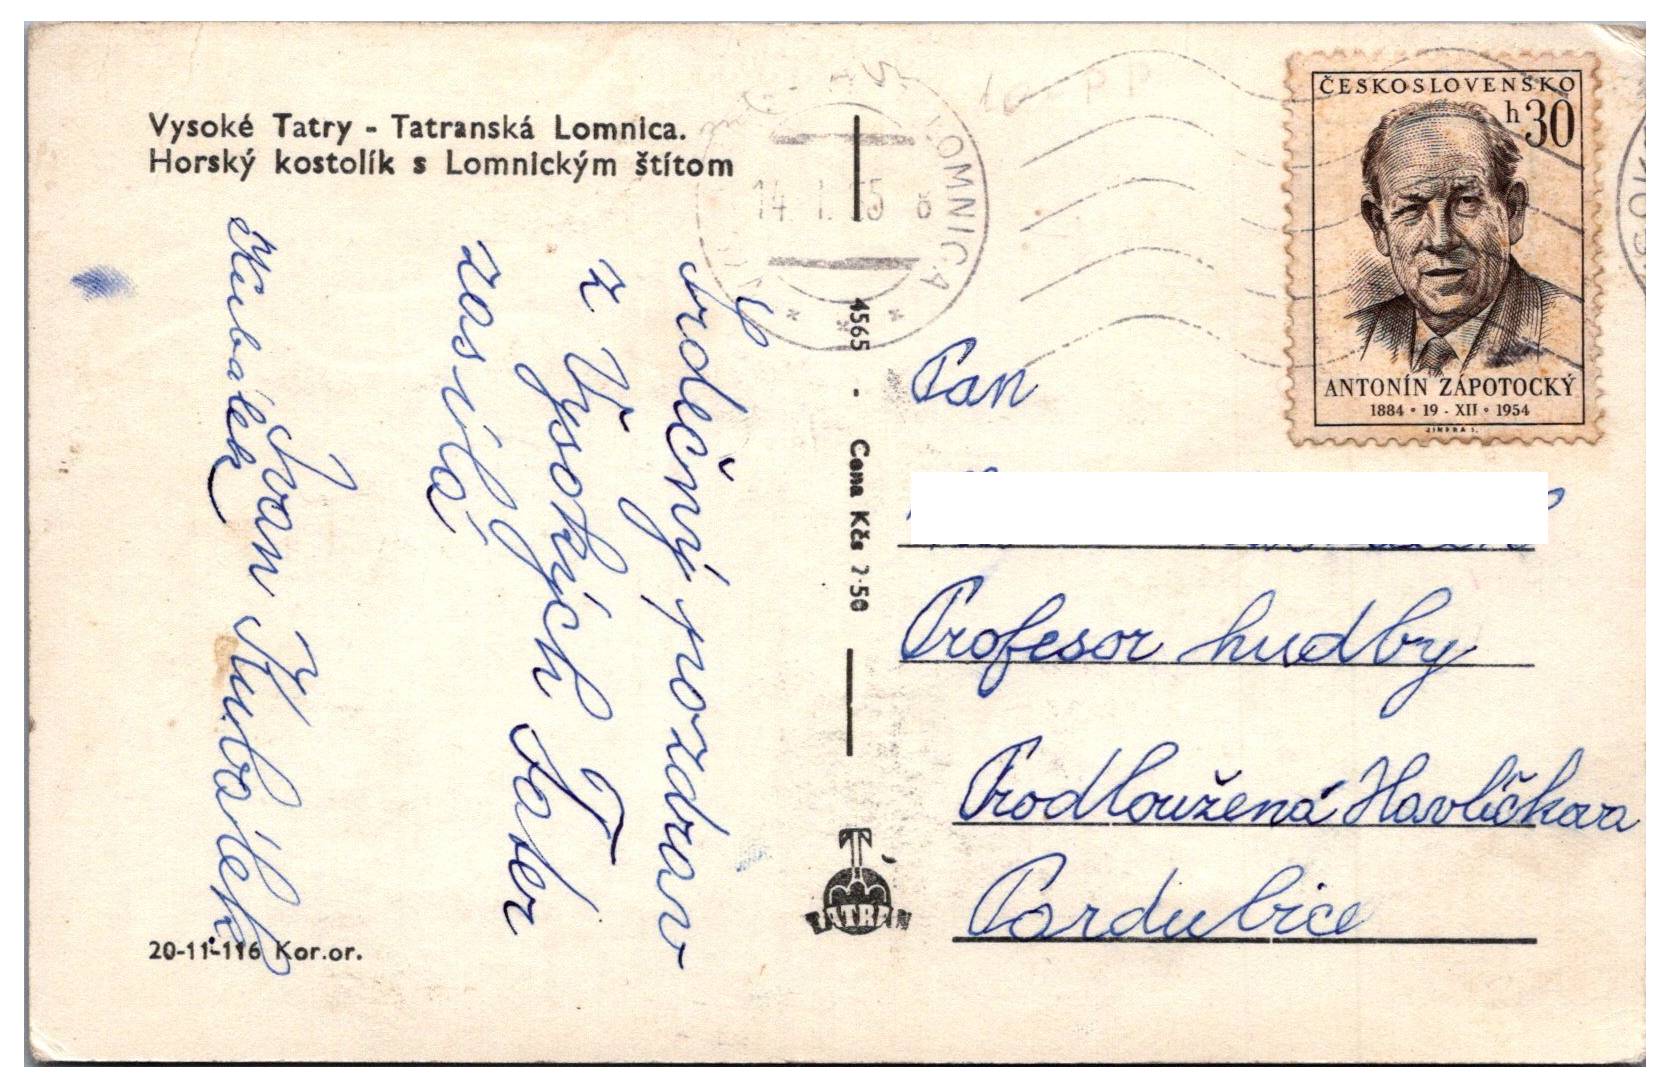 Vysoké Tatry - Tatranská Lomnica.
Horský kostolík s Lomnickým štítom
LOMNICA
14. I. 55 8
ČESKOSLOVENSKO
h 30
ANTONÍN ZÁPOTOCKÝ
1884 • 19 - XII • 1954
Srdečný pozdrav
z Vysokých Tater
zasílá
Ivan Kubálek
Kubálek
4565 - Cena Kčs 2·50
TATRAN
Pan
Profesor hudby
Prodloužená Havlíčkova
Pardubice
20-11-116 Kor.or.